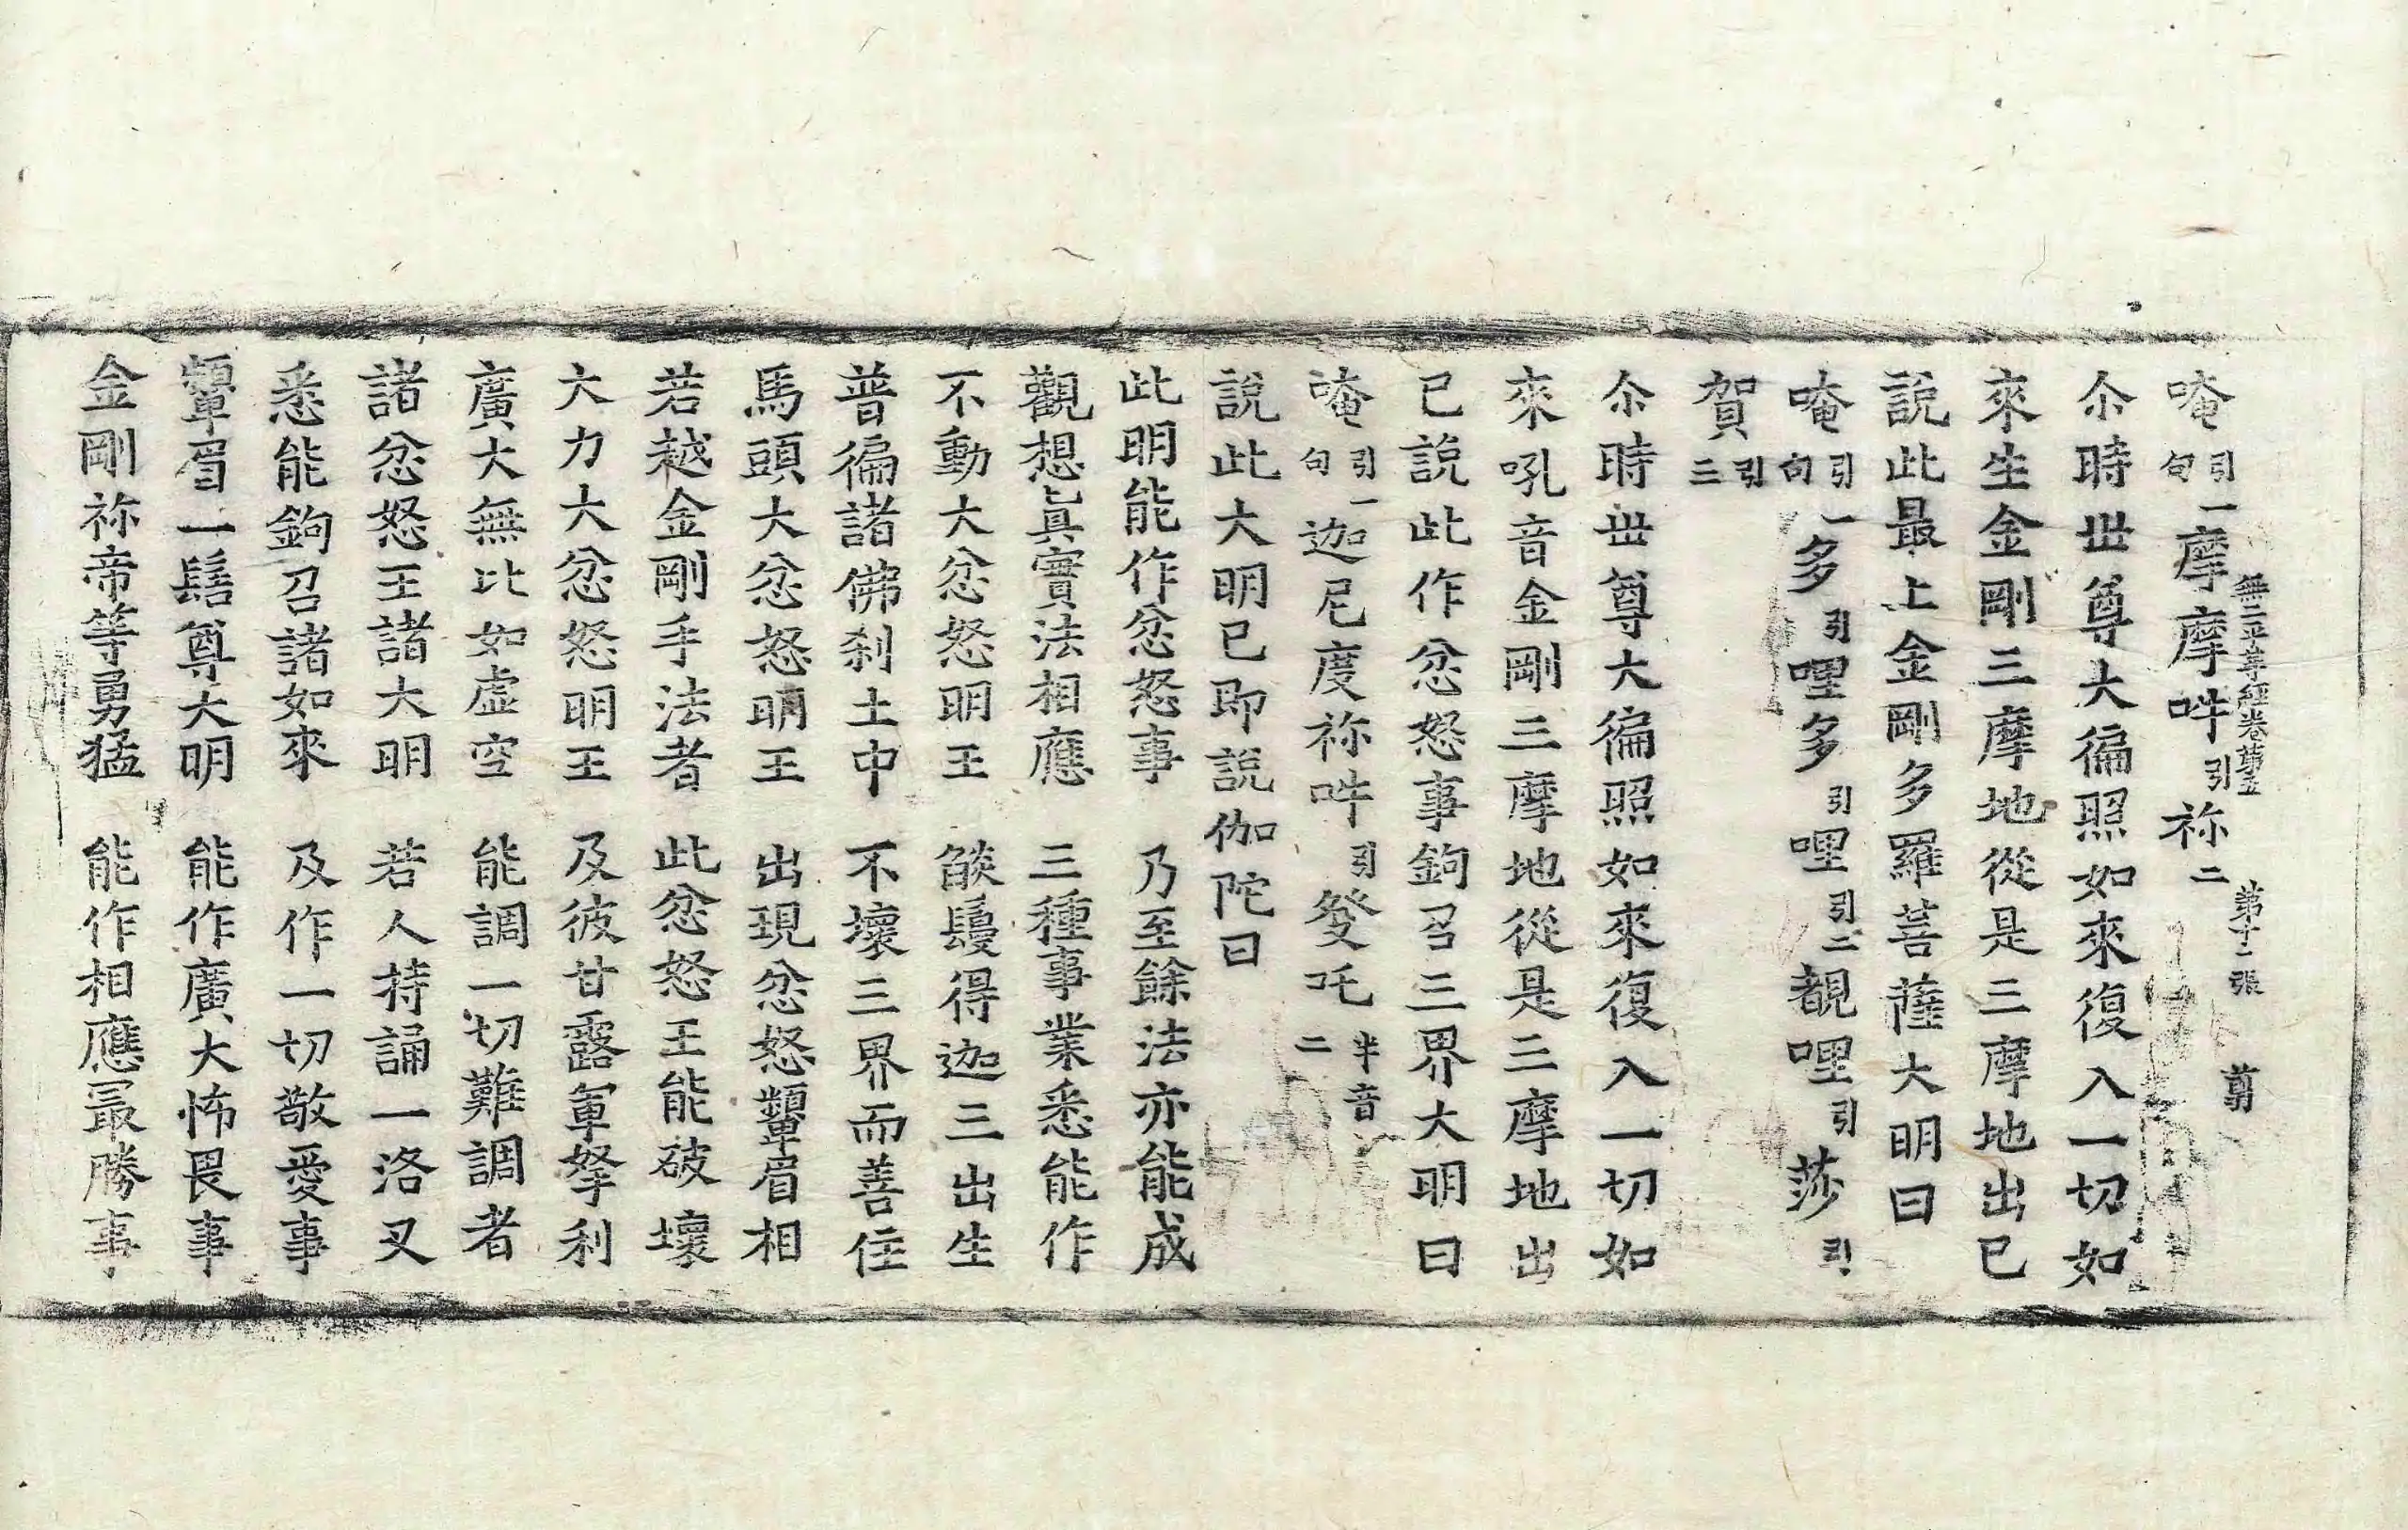 無二平等經卷第五 第十二張 尊
唵引一句摩摩吽引祢二
尒時世尊大徧照如來復入一切如
來生金剛三摩地從是三摩地出已
說此最上金剛多羅菩薩大明曰
唵引一句多引哩多引哩引二覩哩引莎引
賀引三
尒時世尊大徧照如來復入一切如
來吼音金剛三摩地從是三摩地出
已說此作忿怒事鉤召三界大明曰
唵引一句迦尼度祢吽引發吒半音二
說此大明已即說伽陀曰
此明能作忿怒事 乃至餘法亦能成
觀想眞實法相應 三種事業悉能作
不動大忿怒明王 燄鬘得迦三出生
普徧諸佛刹土中 不壞三界而善住
馬頭大忿怒明王 出現忿怒顰眉相
若越金剛手法者 此忿怒王能破壞
大力大忿怒明王 及彼甘露軍拏利
廣大無比如虛空 能調一切難調者
諸忿怒王諸大明 若人持誦一洛叉
悉能鉤召諸如來 及作一切敬愛事
顰眉一髻尊大明 能作廣大怖畏事
金剛祢帝等勇猛 能作相應最勝事